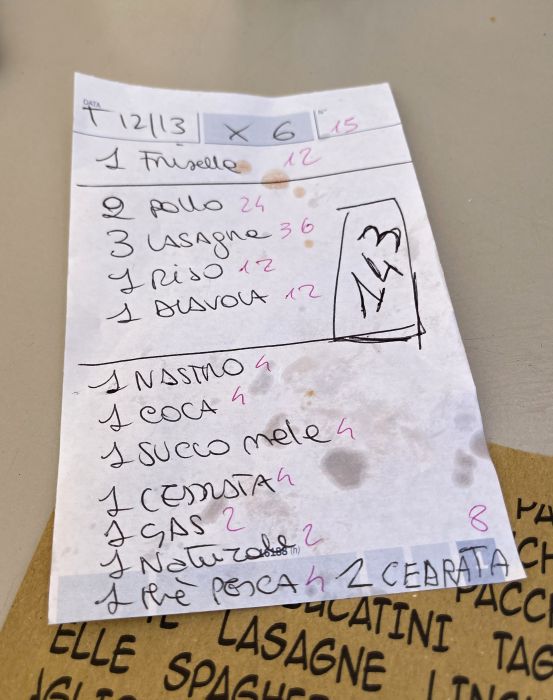 DATA
T 12/13 X 6 N° 15
1 Friselle 12
2 pollo 24
3 LASAGNe 36
1 RISO 12
1 DIAVOLA 12
143
1 NASTRO 4
1 COCA 4
1 SUCCO mele 4
1 CEDRATA 4
1 GAS 2
1 NATURALE 2
8
1 THÈ PESCA 4 2 CEDRATA
PA
CH
PACC
BUCATINI
ELLE LASAGNE TAG
SPAGHE LING